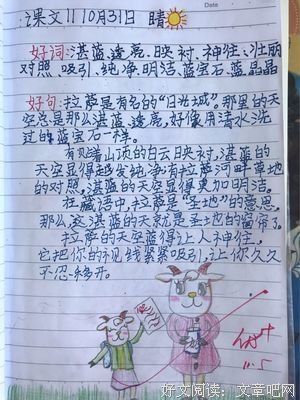 课文11 10月31日 晴
Date
好词:湛蓝、透亮、映衬、神往、壮丽
对照、吸引、纯净、明洁、蓝宝石、蓝晶晶
好句:拉萨是有名的“日光城”。那里的天
空总是那么湛蓝、透亮,好像用清水洗
过的蓝宝石一样。
有贝者山顶的白云映衬,湛蓝的
天空显得越发纯净;有拉萨河畔草地
的对照,湛蓝的天空显得更加明洁。
在藏语中,拉萨是“圣地”的意思,
那么,这湛蓝的天就是圣地的窗帘了。
拉萨的天空蓝得让人神往,
它把你的视线紧紧吸引,让你久久
不忍移开。
优+
11.5
好文阅读:文章吧网